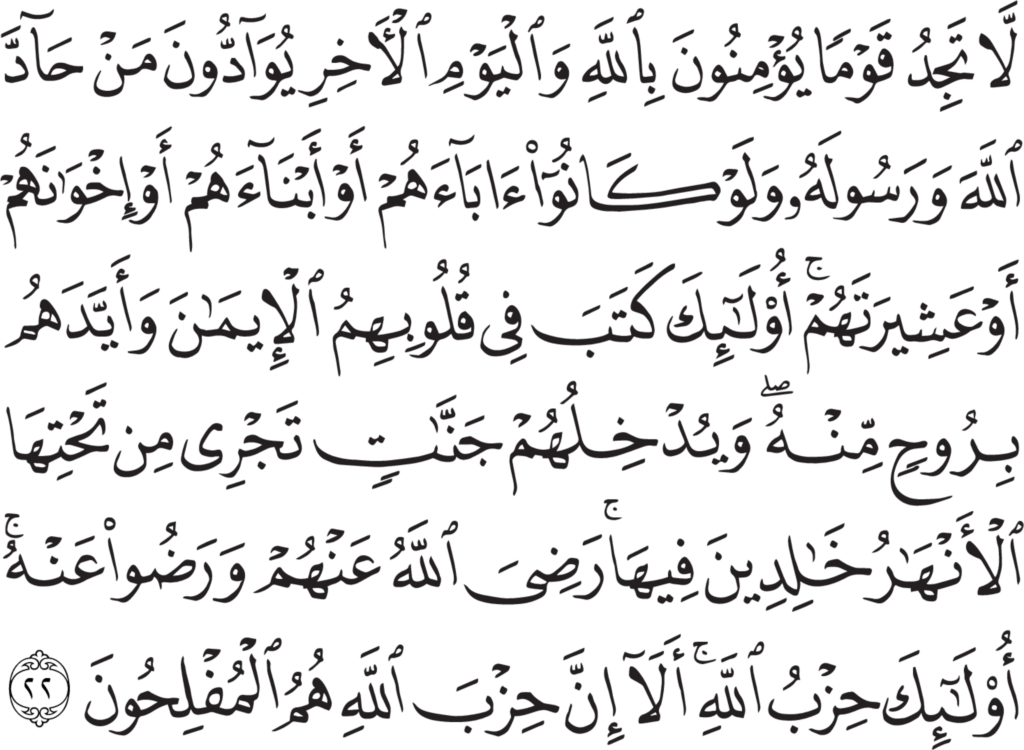 لَّا تَجِدُ قَوْمًا يُؤْمِنُونَ بِٱللَّهِ وَٱلْيَوْمِ ٱلْأَخِرِ يُوَآدُّونَ مَنْ حَآدَّ
ٱللَّهَ وَرَسُولَهُۥ وَلَوْ كَانُوٓا۟ ءَابَآءَهُمْ أَوْ أَبْنَآءَهُمْ أَوْ إِخْوَٰنَهُمْ
أَوْ عَشِيرَتَهُمْ ۚ أُو۟لَٰٓئِكَ كَتَبَ فِى قُلُوبِهِمُ ٱلْإِيمَٰنَ وَأَيَّدَهُم
بِرُوحٍ مِّنْهُ ۖ وَيُدْخِلُهُمْ جَنَّٰتٍ تَجْرِى مِن تَحْتِهَا
ٱلْأَنْهَٰرُ خَٰلِدِينَ فِيهَا ۚ رَضِىَ ٱللَّهُ عَنْهُمْ وَرَضُوا۟ عَنْهُ ۚ
أُو۟لَٰٓئِكَ حِزْبُ ٱللَّهِ ۚ أَلَآ إِنَّ حِزْبَ ٱللَّهِ هُمُ ٱلْمُفْلِحُونَ ٢٢